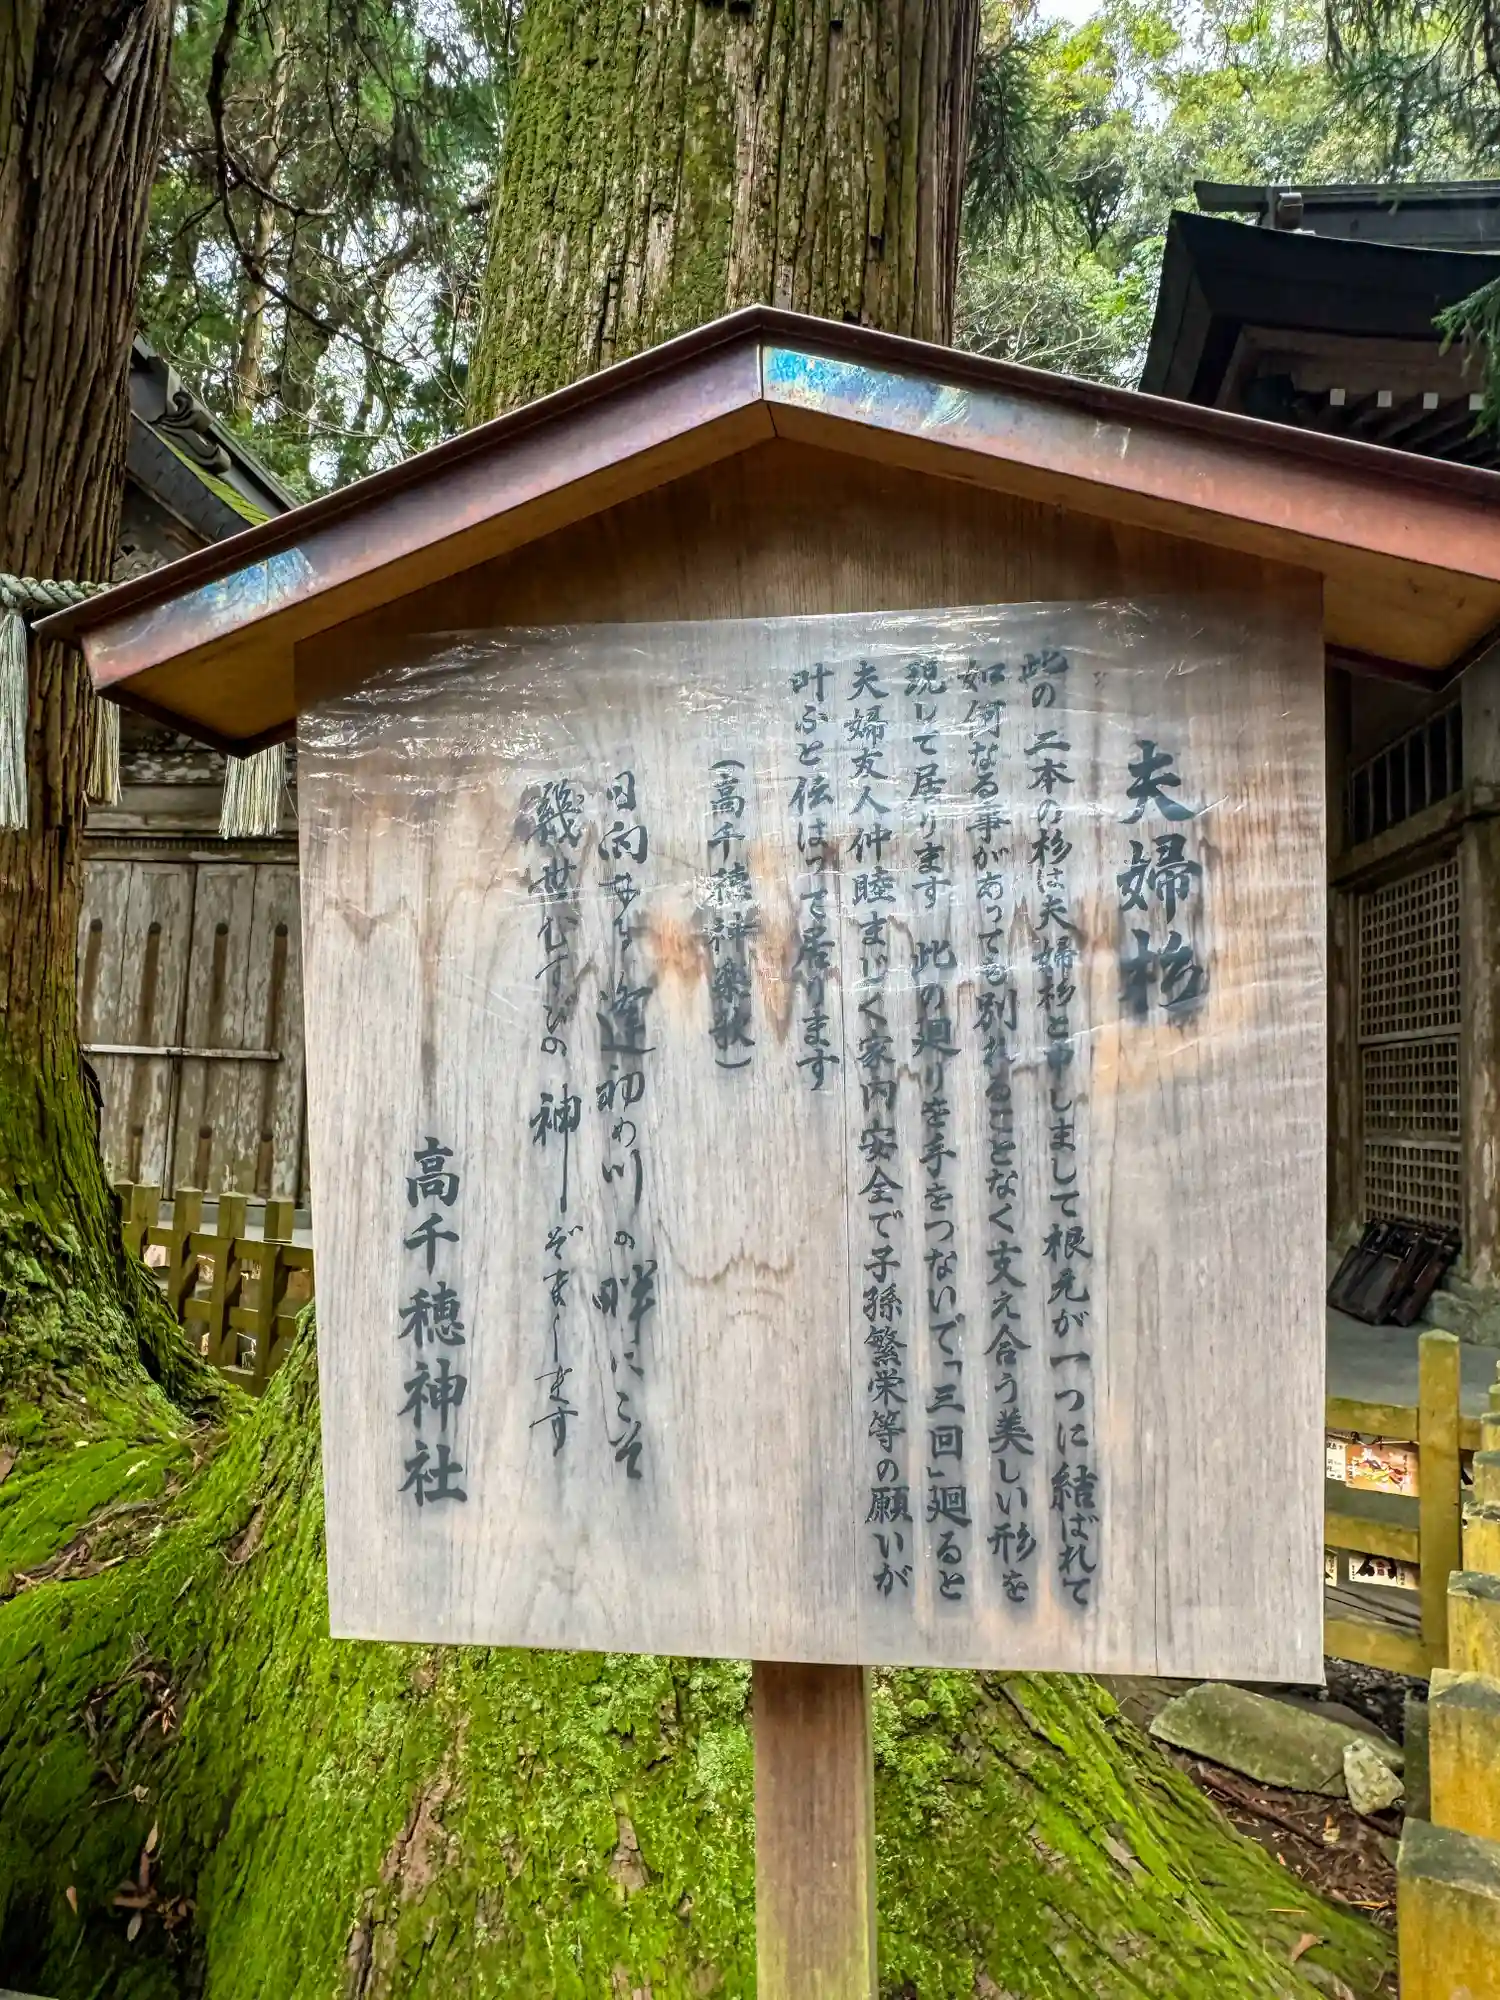 夫婦杉
此の二本の杉は夫婦杉と申しまして根元が一つに結ばれて
如何なる事があっても別れることなく支え合う美しい形を
現して居ります 此の廻りを手をつないで「三回」廻ると
夫婦友人仲睦まじく家内安全で子孫繁栄等の願いが
叶ふと伝はって居ります
(高千穂神楽歌)
日向なる逢初め川の畔にこそ
幾世むすびの神ぞまします
高千穂神社